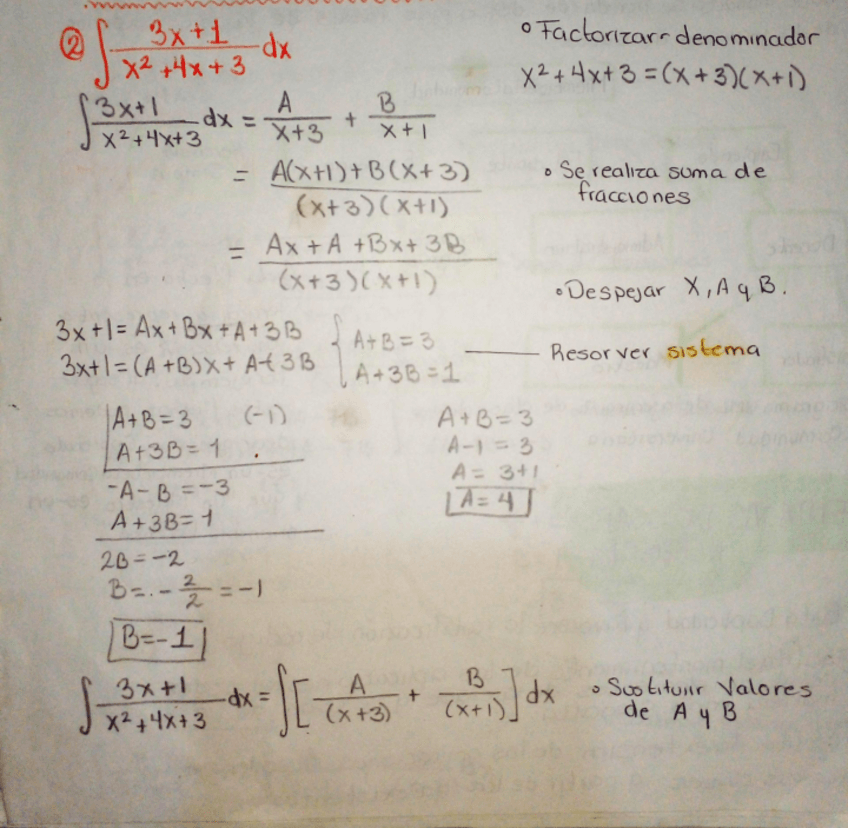 ② ∫ 3x+1 / x² +4x+3 dx
° Factorizar denominador
x²+4x+3 = (x+3)(x+1)
∫ 3x+1 / x²+4x+3 dx = A / x+3 + B / x+1
= A(x+1)+B(x+3) / (x+3)(x+1)
° Se realiza suma de
fracciones
= Ax+A+Bx+3B / (x+3)(x+1)
° Despejar X, A y B.
3x+1 = Ax+Bx+A+3B
3x+1 = (A+B)x + A+3B
{ A+B = 3
A+3B = 1
Resorver sistema
A+B = 3 (-1)
A+3B = 1
-A-B = -3
A+3B = 1
2B = -2
B = - 2/2 = -1
B=-1
A+B = 3
A-1 = 3
A = 3+1
A = 4
∫ 3x+1 / x²+4x+3 dx = ∫ [ A / (x+3) + B / (x+1) ] dx
° Sustituir Valores
de A y B